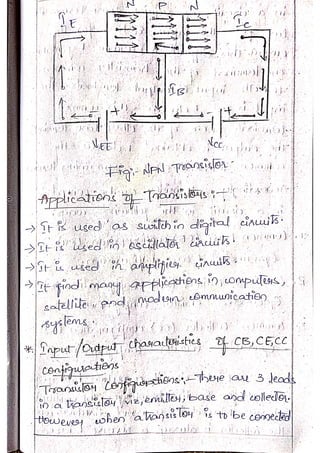 N P N
I_E
I_C
I_B
V_EE
V_CC
Fig:- NPN Transistor
Applications of Transistors:-
→ It is used as switch in digital circuits.
→ It is used in oscillator circuits.
→ It is used in amplifier circuits.
→ It find many applications in computers,
satellite and modern communication
systems.
* Input/Output characteristics of CB, CE, CC
configurations
Transistor configurations:- There are 3 leads
in a transistor viz, emitter, base and collector.
However when a transistor is to be connected